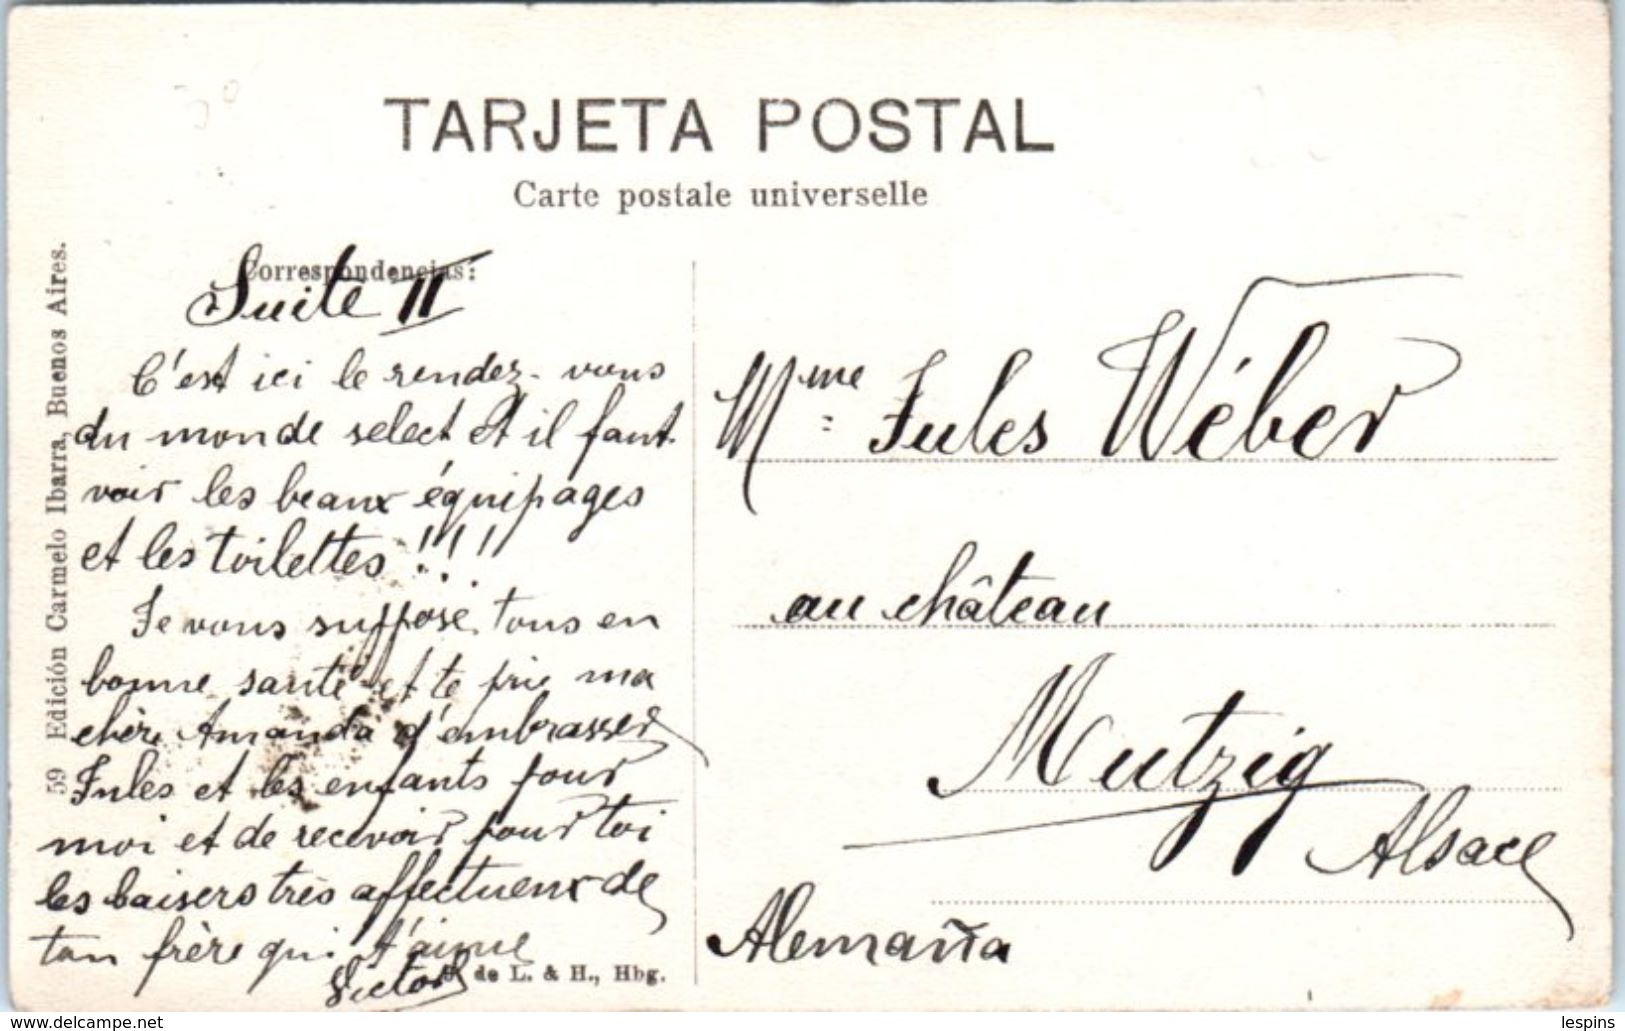 TARJETA POSTAL
Carte postale universelle
Correspondencias:
Suite II
C'est ici le rendez-vous
du monde select et il faut
voir les beaux équipages
et les toilettes !!!
Je vous suppose tous en
bonne santé et te prie ma
chère Amanda d'embrasser
Jules et les enfants pour
moi et de recevoir pour toi
les baisers très affectueux de
ton frère qui t'aime
Victor
de L. & H., Hbg.
59 Edición Carmelo Ibarra, Buenos Aires.
Mme Jules Wéber
au château
Mutzig
Alsace
Alemaña
delcampe.net
lespins